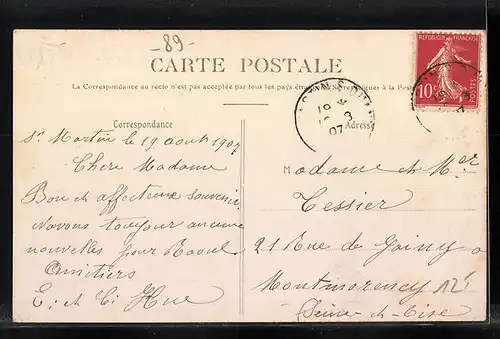 -89-
CARTE POSTALE
La Correspondance au recto n'est pas acceptée par tous les pays étrangers à la Poste
REPUBLIQUE FRANÇAISE
10c
POSTES
19
8
07
Correspondance
Adresse
St Martin le 19 août 1907
Chere Madame
Bon et affecteux souvenir
Navons toujour aucune
nouvelles pour Raoul
Amitiers
E. et Hue
M
Madame et Mer
Tessier
21 Rue de
Montmorency
Seine et Oise
12